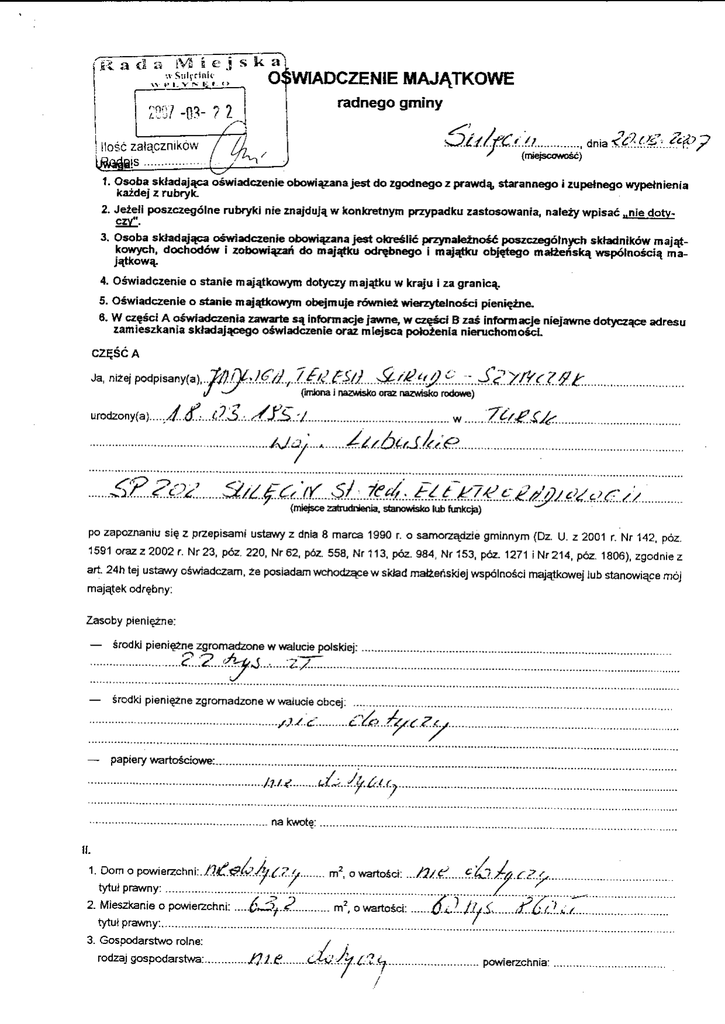 Rada Miejska
w Sulęcinie
WPŁYNĘŁO
2007 -03- 22
Ilość załączników
Podpis ................
OŚWIADCZENIE MAJĄTKOWE
radnego gminy
Sulęcin, dnia 20.03.2007
(miejscowość)
Uwaga:
1. Osoba składająca oświadczenie obowiązana jest do zgodnego z prawdą, starannego i zupełnego wypełnienia
każdej z rubryk.
2. Jeżeli poszczególne rubryki nie znajdują w konkretnym przypadku zastosowania, należy wpisać „nie doty-
czy".
3. Osoba składająca oświadczenie obowiązana jest określić przynależność poszczególnych składników mająt-
kowych, dochodów i zobowiązań do majątku odrębnego i majątku objętego małżeńską wspólnością ma-
jątkową.
4. Oświadczenie o stanie majątkowym dotyczy majątku w kraju i za granicą.
5. Oświadczenie o stanie majątkowym obejmuje również wierzytelności pieniężne.
6. W części A oświadczenia zawarte są informacje jawne, w części B zaś informacje niejawne dotyczące adresu
zamieszkania składającego oświadczenie oraz miejsca położenia nieruchomości.
CZĘŚĆ A
Ja, niżej podpisany(a), JADWIGA, TERESA - SZYMCZAK
(imiona i nazwisko oraz nazwisko rodowe)
urodzony(a) 18.03.1951 w TURSK
woj. Lubuskie
SP ZOZ SULĘCIN St. tech. ELEKTRORADIOLOGII
(miejsce zatrudnienia, stanowisko lub funkcja)
po zapoznaniu się z przepisami ustawy z dnia 8 marca 1990 r. o samorządzie gminnym (Dz. U. z 2001 r. Nr 142, póz.
1591 oraz z 2002 r. Nr 23, póz. 220, Nr 62, póz. 558, Nr 113, póz. 984, Nr 153, póz. 1271 i Nr 214, póz. 1806), zgodnie z
art. 24h tej ustawy oświadczam, że posiadam wchodzące w skład małżeńskiej wspólności majątkowej lub stanowiące mój
majątek odrębny:
Zasoby pieniężne:
— środki pieniężne zgromadzone w walucie polskiej:
22 tys. zł
— środki pieniężne zgromadzone w walucie obcej:
nie dotyczy
— papiery wartościowe:
nie dotyczy
na kwotę:
II.
1. Dom o powierzchni: nie dotyczy m², o wartości: nie dotyczy
tytuł prawny:
2. Mieszkanie o powierzchni: 63,2 m², o wartości: tys
tytuł prawny:
3. Gospodarstwo rolne:
rodzaj gospodarstwa: nie dotyczy powierzchnia: